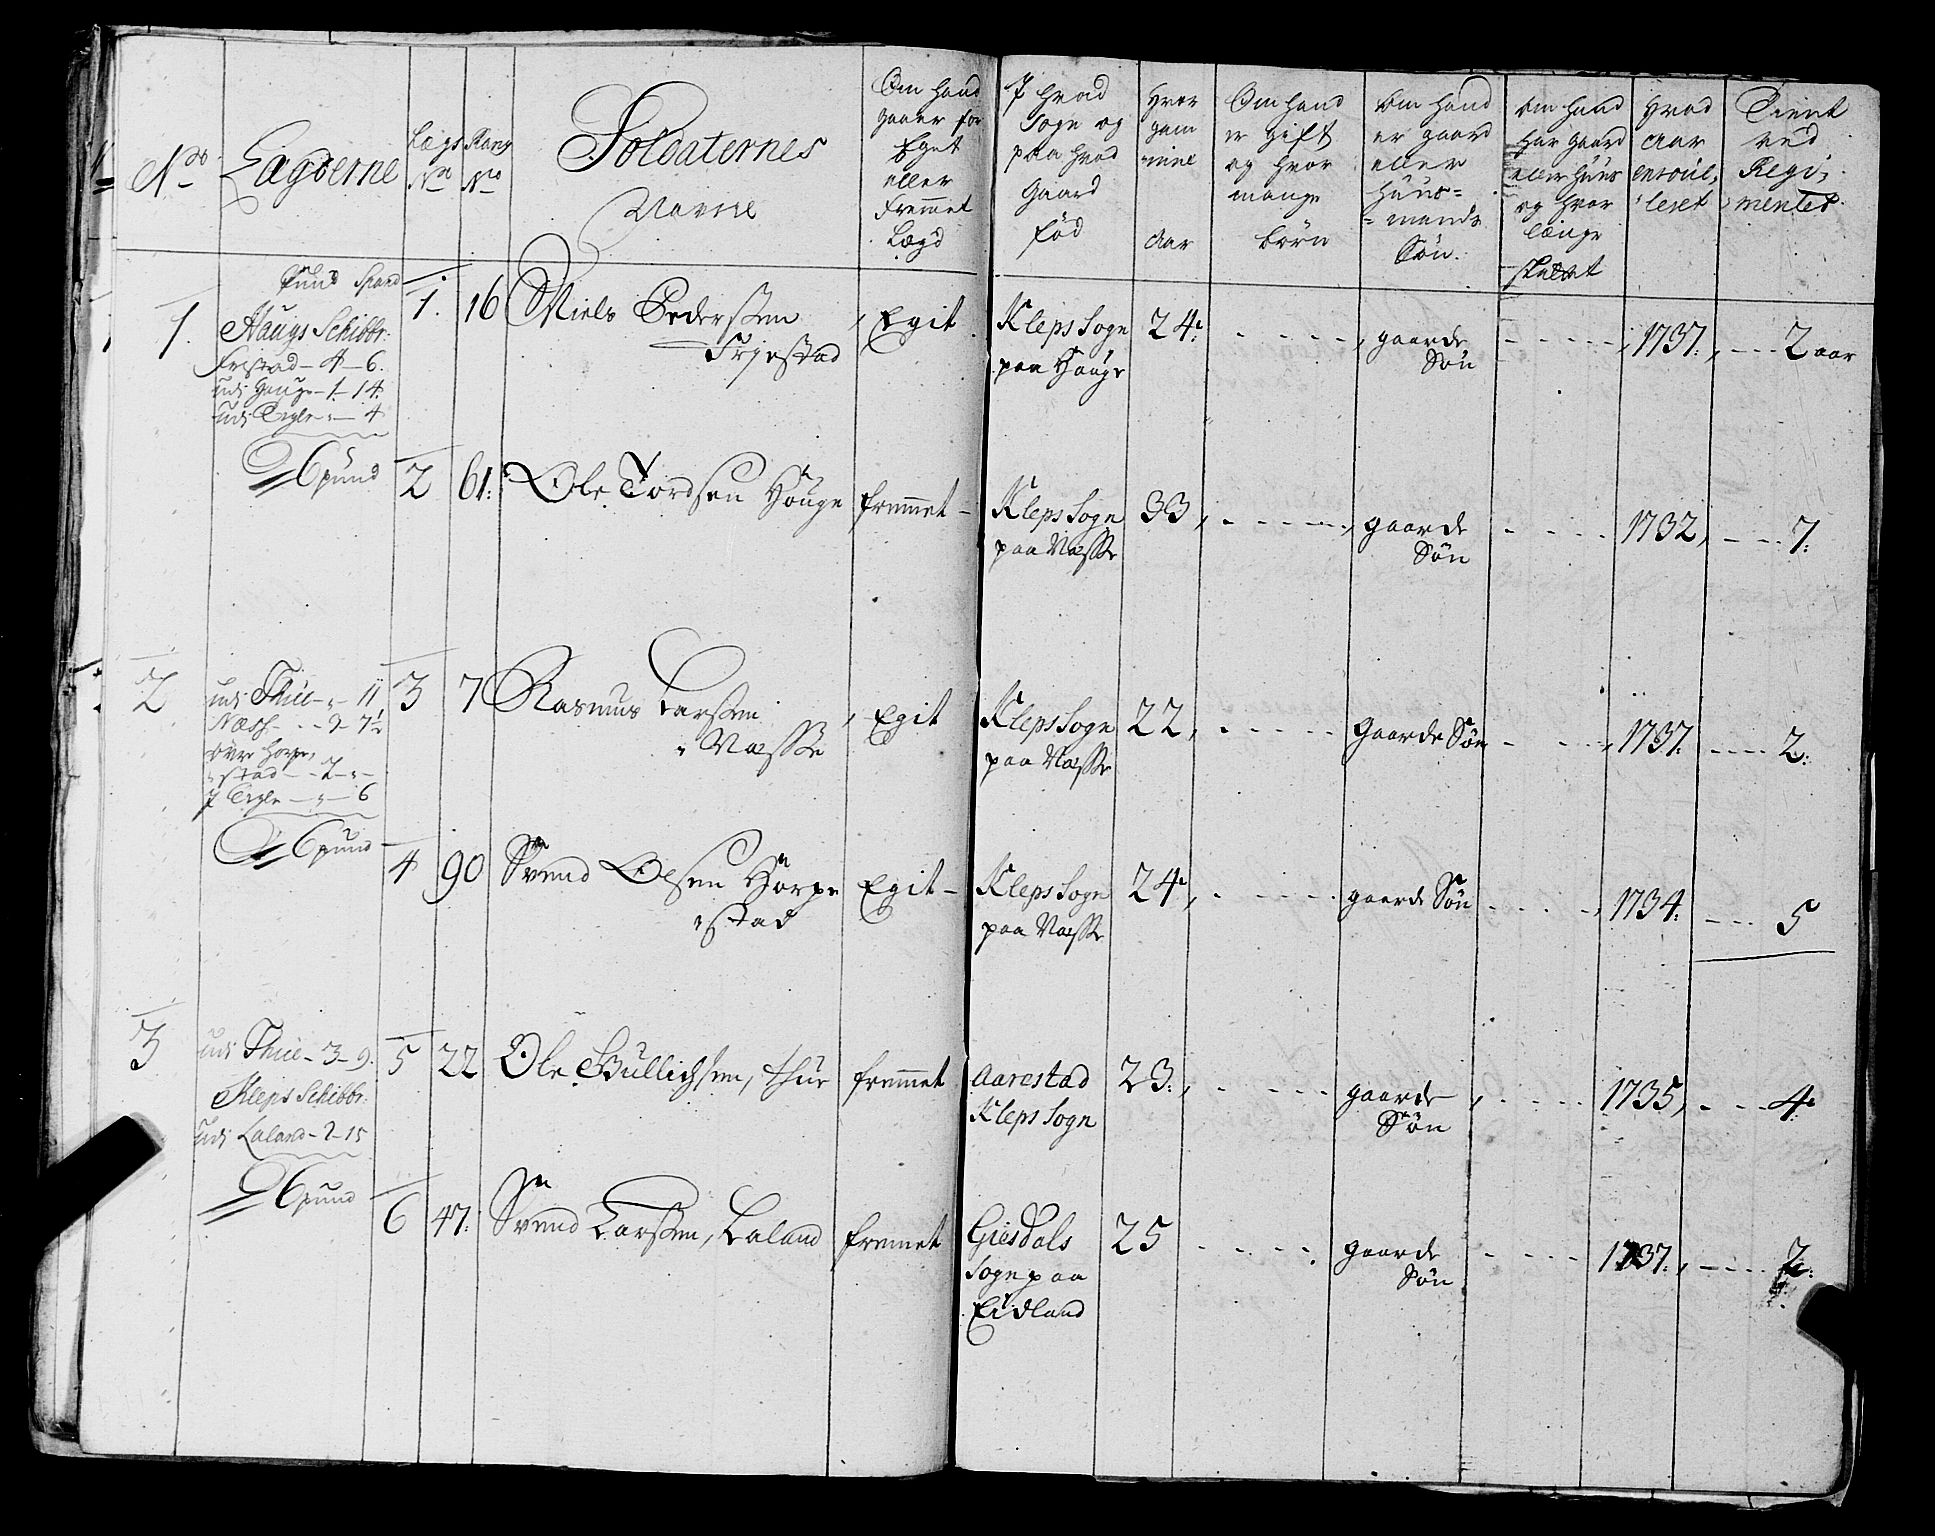 No
Lægderne
Lægs No
Rang No
Soldaternes
Navne
Om hand
gaaer for
Eget
eller
Fremmet
Lægd
I hvad
Sogn og
paa hvad
Gaard
fød
Hvor
gam
mine
aar
Om hand
er gift
og hvor
mange
børn
Om hand
er gaard
eller
Huus=
=mands
Søn.
Om hand
har gaard
eller Huus
og hvor
længe
Hvad
aar
enroul,
leret
Tient
ved
Regi,
mentet
Pund Spand
1.
Haugs Schibbr:
Frestad - 4 - 6.
udi Hauge - 1 - 14
udi Tegle - " - 4
6 pund
1. 16 Niels Pedersen
Friestad
Egit
Kleps Sogn
paa Houge
24
gaarde
Søn
1737.
2 aar
2 61: Ole Tordsen Houge
fremmet
Kleps Sogn
paa Næsse
33
gaarde
Søn
1732
7:
2
udi Thue - " - 11
Næss - - 2 - 7½
over Horpe,
"stad - - 2 - " -
I Tegle - " - 6
6 pund
3 7 Rasmus Larsen
Næsse
Egit
Kleps Sogn
paa Næsse
22
gaarde Søn
1737.
2:
4 90 Svend Olsen Horpe
"stad
Egit
Kleps Sogn
paa Næsse
24
gaarde Søn
1734.
5
3
udi Thue - 3 - 9.
Kleps Schibbr:
udi Laland - 2 - 15
6 pund
5 22 Ole Gullichsen, Thue
fremmet
Aarestad
Kleps Sogn
23:
gaarde
Søn
1735
4
6 47: Svend Larsen, Laland
fremmet
Giesdals
Sogn paa
Eidland
25
gaarde
Søn
1737.
2: